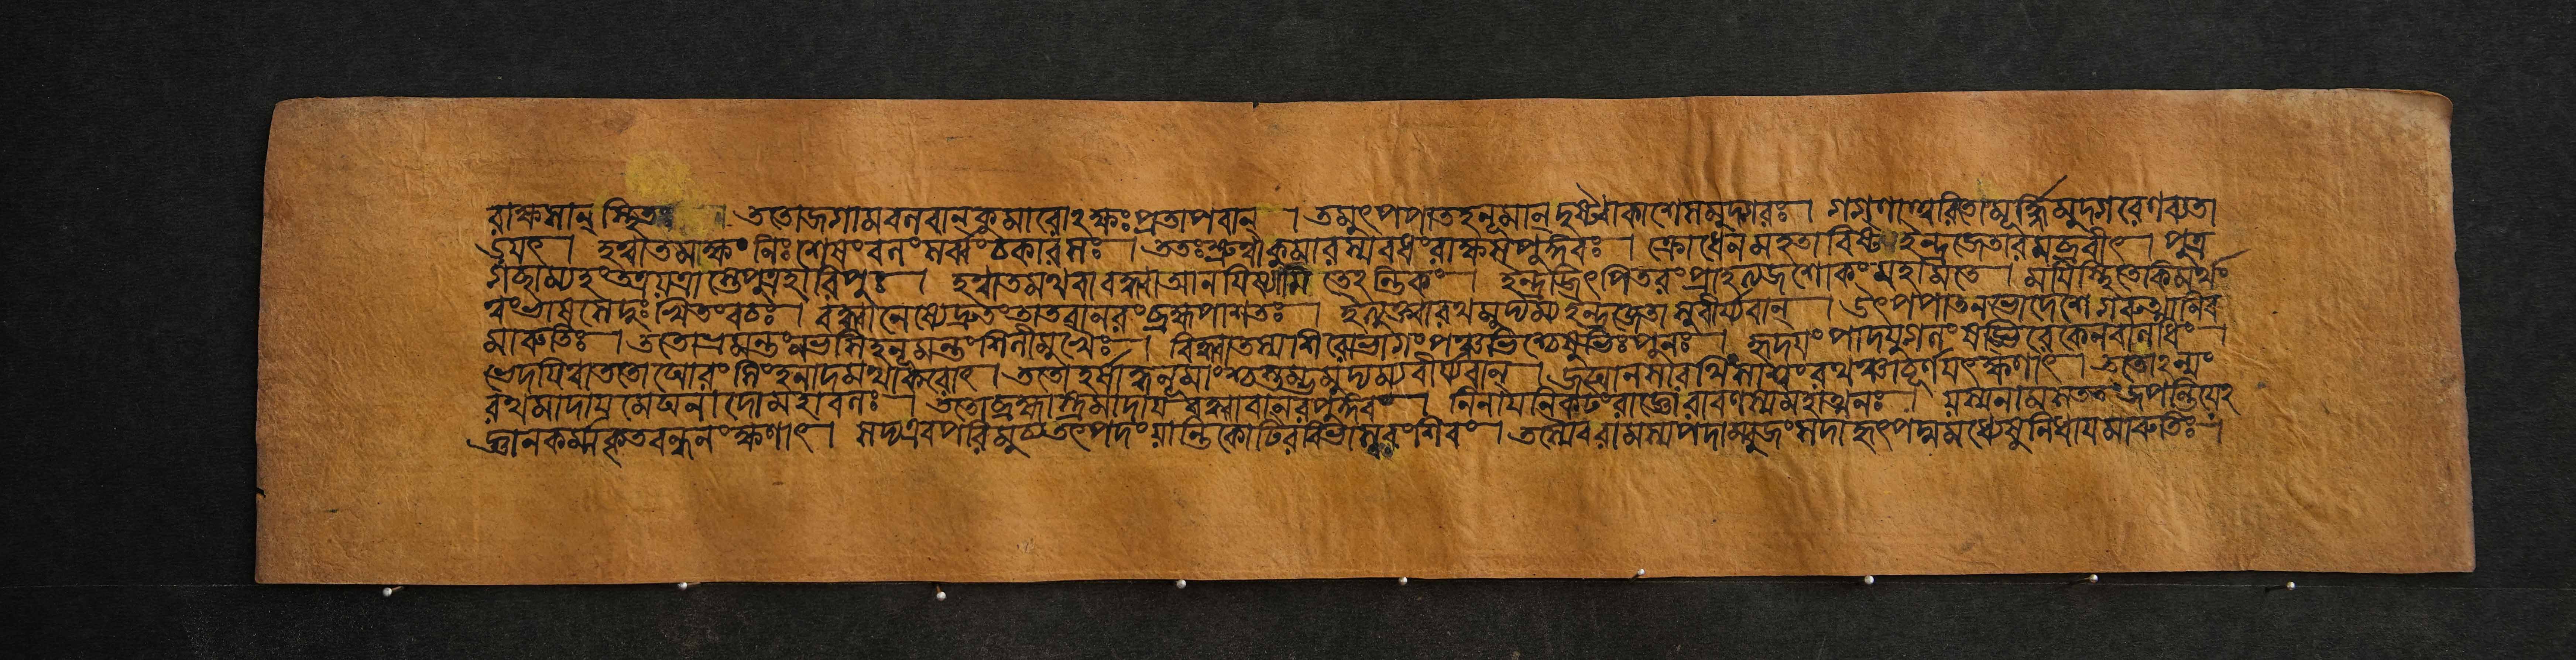 রাক্ষসান্ স্থিতঃ । ততোজগামবলবান্ কুমারোঽক্ষঃপ্রতাপবান্ । তমুৎপপাতহনূমান্ দৃষ্ট্বাকাশেসমুদ্গরঃ । গগণাত্ত্বরিতোমূর্দ্ধ্নিমুদ্গরেণব্যতা
ডয়ৎ । হত্বাতমাক্ষং নিঃশেষংবলংসর্ব্বংচকারসঃ । ততঃশ্রুত্বাকুমারস্যবধংরাক্ষসপুঙ্গবঃ । ক্রোধেনমহতাবিষ্ট ইন্দ্রজেতারমব্রবীৎ । পুত্র
গচ্ছাম্যহংতত্রযত্রাস্তেপুত্রহারিপুঃ । হত্বাতমথবাবদ্ধ্বাআনযিষ্যামি তেঽন্তিকং । ইন্দ্রজিৎপিতরংপ্রাহত্যজশোকংমহামতে । মযিস্থিতেকিমর্থং
ত্বংভাষসেদুঃখিতংবচঃ । বদ্ধ্বানেষ্যেদ্রুতংতাতবানরংব্রহ্মপাশতঃ । ইত্যুক্ত্বারথমুদ্যম্য ইন্দ্রজেতাসুবীর্য্যবান্ । উৎপপাতনভোদেশেগরুত্মানিব
মারুতিঃ । ততোভ্রমন্তংনভসিহনূমন্তংশিলীমুখৈঃ । বিদ্ধ্বাতস্যশিরোভাগংপঞ্চভিশ্চেষুভিঃপুনঃ । হৃদয়ংপাদযুগলংষড্ভিরেকেনবালধিং ।
ভেদযিত্বাততোঘোরংসিংহনাদমথাকরোৎ । ততোহর্ষাদ্ধনূমাংশ্চস্তম্ভমুদ্যম্যবীর্য্যবান্ । জঘানসারথিংসাশ্বংরথঞ্চাচূর্ণযৎক্ষণাৎ । ততোঽন্যং
রথমাদায়মেঘনাদোমহাবলঃ । ততোব্রহ্মাস্ত্রমাদায় বদ্ধ্বাবানরপুঙ্গবং । নিনায়নিকটংরাজ্ঞোরাবণস্যমহাত্মনঃ । যস্যনামসততংজপন্তিযেঽ
জ্ঞানকর্ম্মকৃতবন্ধনংক্ষণাৎ । সদ্যএবপরিমুচ্যতৎপদংযান্তিকোটিরবিভাসুরংশিবং । তস্যৈবরামস্যপদাম্বুজংসদাহৃৎপদ্মমধ্যেসুনিধায়মারুতিঃ ।